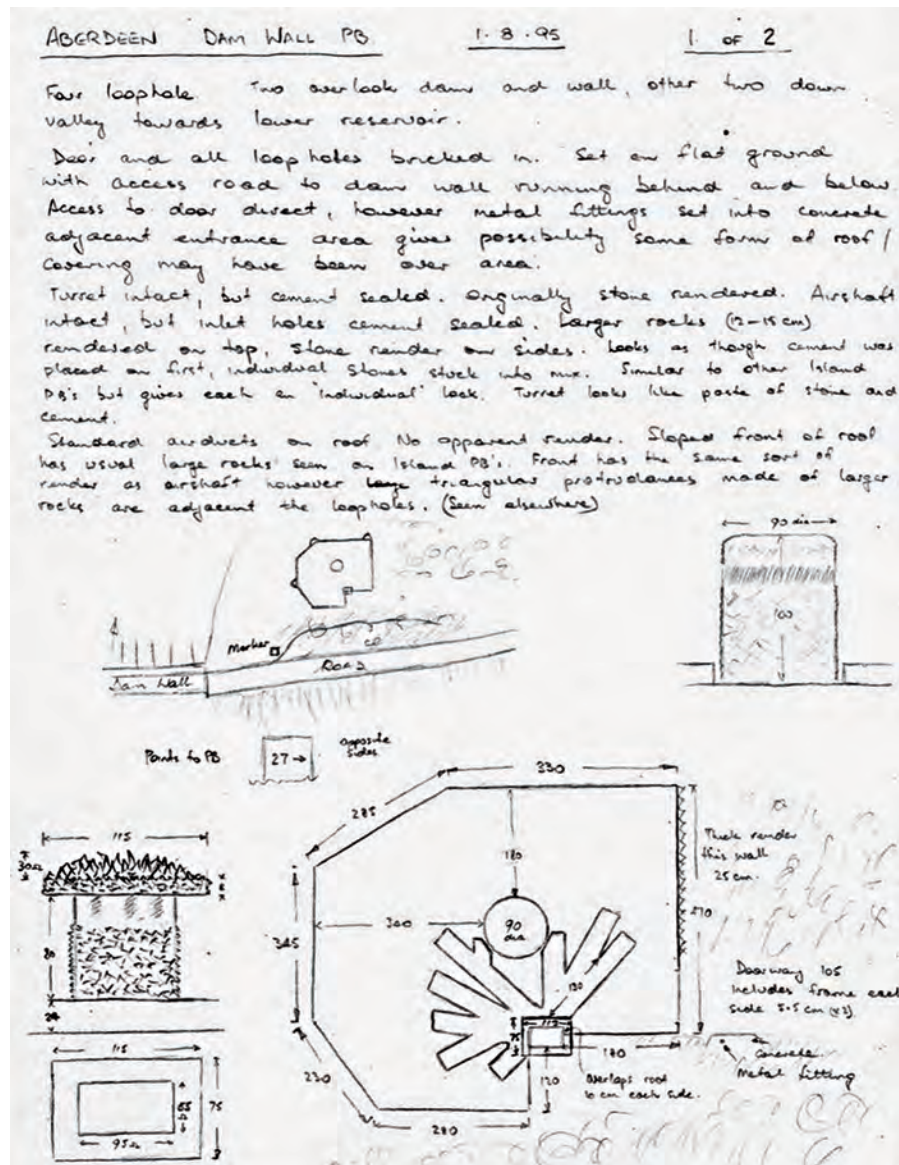 ABERDEEN DAM WALL PB. 1.8.95 1 OF 2
Four loophole. Two overlook dam and wall, other two down
valley towards lower reservoir.
Door and all loopholes bricked in. Set on flat ground
with access road to dam wall running behind and below.
Access to door direct, however metal fittings set into concrete
adjacent entrance area gives possibility some form of roof /
covering may have been over area.
Turret intact, but cement sealed. Originally stone rendered. Airshaft
intact, but inlet holes cement sealed. Larger rocks (12-15cm)
rendered on top, stone render on sides. Looks as though cement was
placed on first, individual stones stuck into mix. Similar to other Island
PB's but gives each an 'individual' look. Turret looks like paste of stone and
cement.
Standard airducts on roof. No apparent render. Sloped front of roof
has usual large rocks seen on Island PB's. Front has the same sort of
render as airshaft however triangular protrudances made of larger
rocks are adjacent the loopholes. (Seen elsewhere)
90 dia
100
Marker
Road
Dam Wall
Points to PB
27→
opposite
sides
330
285
115
30
180
Thick render
this wall
25 cm.
345
340
90
dia
80
130
Doorway 105
includes frame each
side 5.5 cm (x2)
24
115
75
180
Concrete
Metal fitting
115
230
120
overlaps roof
10 cm each side.
55
75
95
280